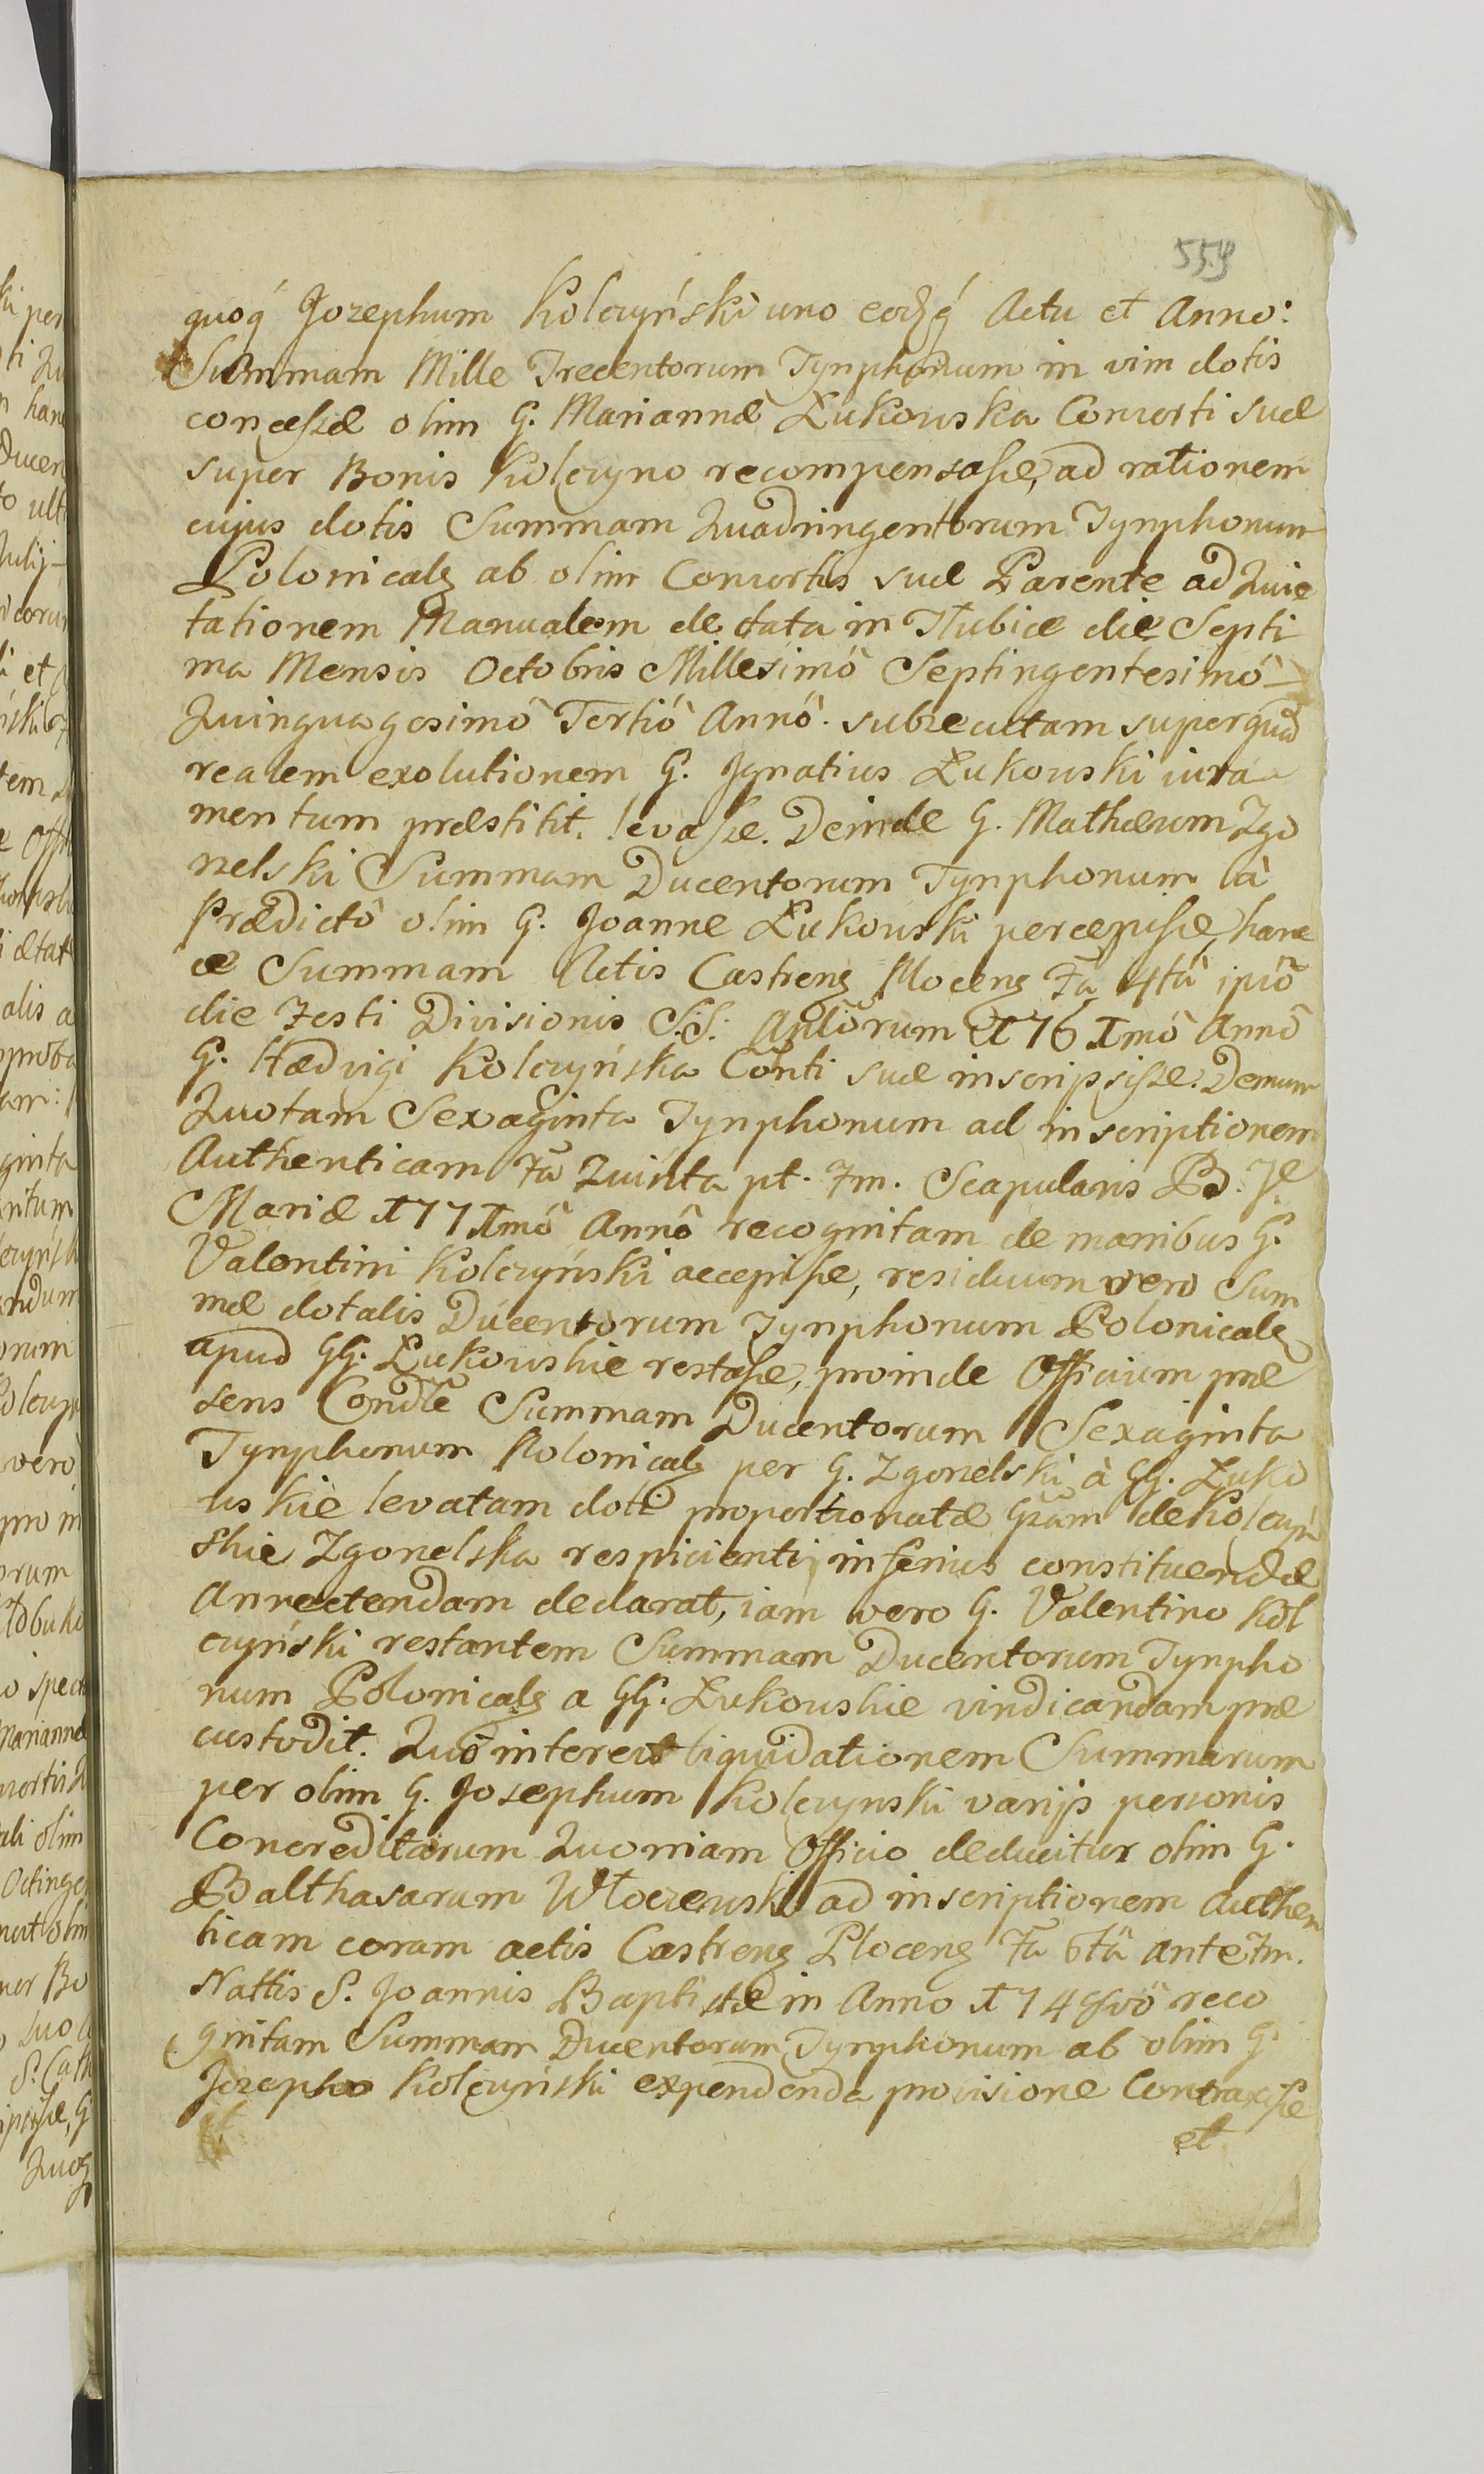 559
quoq́ Jozephum Kolczyński uno eodq́ Actu et Anno:
Summam Mille Trecentorum Tynphonum in vim dotis
concessæ olim G. Mariannæ Łukowska Consorti suæ
super Bonis Kolczyno recompensasse, ad rationem
cujus dotis Summam Quadringentorum Tynphonum
Polonicalg ab olim Consortis suæ Parente ad Quie
tationem Manualem de data in Słubice die Septi
ma Mensis Octobris Millesimô Septingentesimô
Quinquagesimô Tertiô Annô. subsecutam super quâ
realem exolutionem G. Ignatius Łukowski iura
mentum præstitit. levasse. Deinde G. Mathæum Zgo
nelski Summam Ducentorum Tynphonum à
Prædictô olim G. Joanne Łukowski percepisse, hanc
ce Summam Actis Castreng Ploceng Fã 4tâ ipsô
die Festi Divisionis S.S. Aplõrum 1761mô Annô
G. Hædvigi Kolczyńska Cõnti suæ inscripsisse. Demum
Quotam Sexaginta Tynphonum ad inscriptionem
Authenticam Fã Quinta pt. Fm. Scapularis B. V.
Mariæ 1771mô Annô recognitam de manibus G.
Valentini Kolczyński accepisse, residuum vero Sum
mæ dotalis Ducentorum Tynphonum Polonicalg
apud GG. Łukowskie restasse, proinde Officium præ
sens Condle Summam Ducentorum Sexaginta
Tynphonum Polonicalg per G. Zgonelski à GG. Łuko
wskie levatam doti proportionatæ Gsãm de Kolczyń
skie Zgonelska respicienti, inferius constituendæ
Annectendam declarat, iam vero G. Valentino Kol
czyński restantem Summam Ducentorum Tynpho
num Polonicalg a GG. Łukowskie vindicandam præ
custodit. Quô intereat liquidationem Summarum
per olim G. Josephum Kolczynski varijs personis
Concreditarum Quoniam Officio deducitur olim G.
Balthasarum Włoczewski ad inscriptionem Authen
ticam coram actis Castreng Ploceng Fã 6tâ ante Fm.
Nattis S. Joannis Baptistæ in Anno 1748vô reco
gnitam Summam Ducentorum Tynphonum ab olim G.
Jozepho Kolczyński expendenda provisione Contraxisse
et